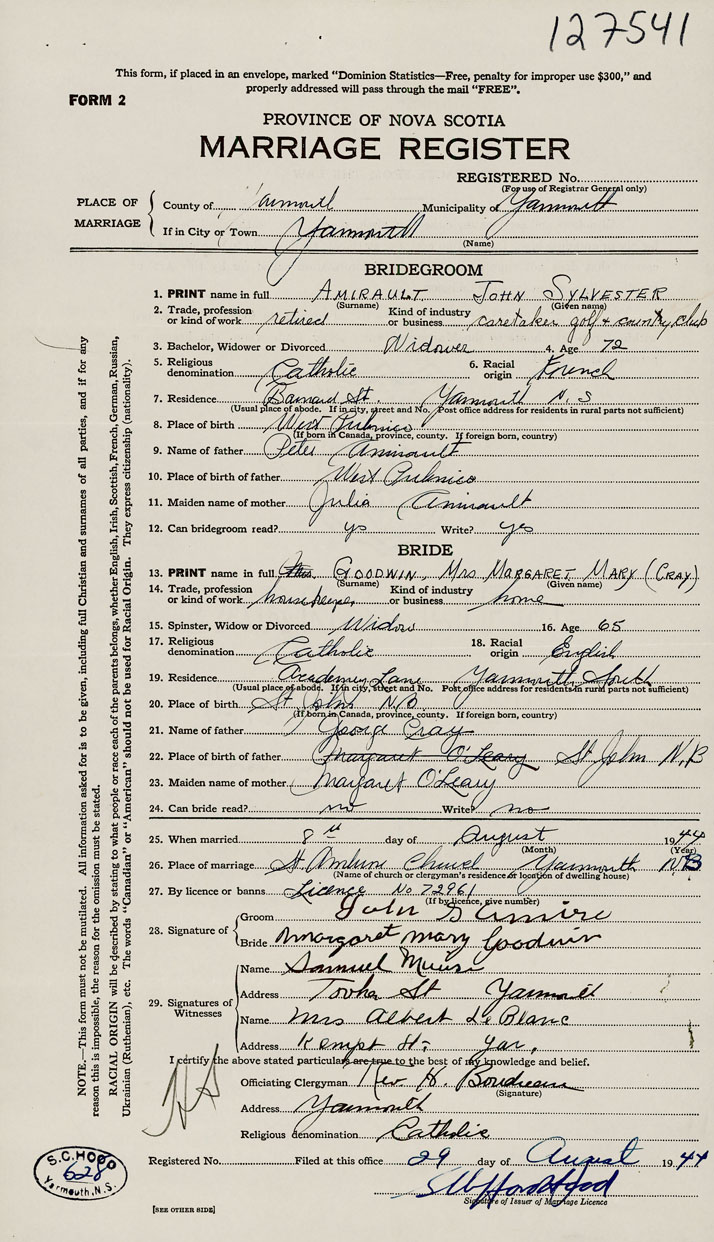 127541
This form, if placed in an envelope, marked "Dominion Statistics—Free, penalty for improper use $300," and
properly addressed will pass through the mail "FREE".
FORM 2
PROVINCE OF NOVA SCOTIA
MARRIAGE REGISTER
REGISTERED No.
(For use of Registrar General only)
PLACE OF MARRIAGE
County of Yarmouth Municipality of Yarmouth
If in City or Town Yarmouth
(Name)
BRIDEGROOM
1. PRINT name in full AMIRAULT JOHN SYLVESTER
(Surname) (Given name)
2. Trade, profession or kind of work retired Kind of industry or business caretaker golf & country club
3. Bachelor, Widower or Divorced Widower 4. Age 72
5. Religious denomination Catholic 6. Racial origin French
7. Residence Barnard St. Yarmouth N.S
(Usual place of abode. If in city, street and No. Post office address for residents in rural parts not sufficient)
8. Place of birth West Pubnico
(If born in Canada, province, county. If foreign born, country)
9. Name of father Peter Amirault
10. Place of birth of father West Pubnico
11. Maiden name of mother Julia Amirault
12. Can bridegroom read? yes Write? yes
BRIDE
13. PRINT name in full GOODWIN, Mrs MARGARET MARY (CRAY)
(Surname) (Given name)
14. Trade, profession or kind of work housekeeper Kind of industry or business home
15. Spinster, Widow or Divorced Widow 16. Age 65
17. Religious denomination Catholic 18. Racial origin English
19. Residence Academy Lane Yarmouth South
(Usual place of abode. If in city, street and No. Post office address for residents in rural parts not sufficient)
20. Place of birth St John N.B.
(If born in Canada, province, county. If foreign born, country)
21. Name of father George Cray
22. Place of birth of father Margaret O'Leary St John N.B
23. Maiden name of mother Margaret O'Leary
24. Can bride read? no Write? no
25. When married 8th day of August 1944
(Month) (Year)
26. Place of marriage St Ambrose Church Yarmouth
(Name of church or clergyman's residence or location of dwelling house)
27. By licence or banns Licence No 72961
(If by licence, give number)
28. Signature of Groom John S Amiro
Bride Margaret Mary Goodwin
29. Signatures of Witnesses
Name Samuel Muise
Address St Yarmouth
Name Mrs Albert LeBlanc
Address Kempt St. Yar.
I certify the above stated particulars are true to the best of my knowledge and belief.
Officiating Clergyman Rev H. Boudreau
(Signature)
Address Yarmouth
Religious denomination Catholic
Registered No. Filed at this office 29 day of August 1944
Signature of Issuer of Marriage Licence
[SEE OTHER SIDE]
S.C. HOOD
628
Yarmouth, N.S.
NOTE.—This form must not be mutilated. All information asked for is to be given, including full Christian and surnames of all parties, and if for any
reason this is impossible, the reason for the omission must be stated.
RACIAL ORIGIN will be described by stating to what people or race each of the parents belongs, whether English, Irish, Scottish, French, German, Russian,
Ukrainian (Ruthenian), etc. The words "Canadian" or "American" should not be used for Racial Origin. They express citizenship (nationality).